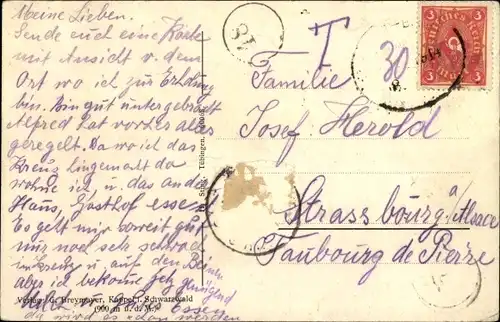 Meine Lieben.
Sende euch eine Karte
mit Ansicht v. dem
Ort wo ich zur Erholung
bin. Bin gut untergebracht
Alfred hat vorher alles
geregelt. Da wo ich das
Kreuz hingemacht da
wohne ich, u. das andre
Haus, Gasthof esse ich
Es geht mir soweit gut
nur noch sehr schwach
im Kreuz u. auf den Beinen
aber ich bekomme genügend
Essen
da wird es dan werden
Verlag: G. Breymayer, Schwarzwald
(900 m ü. d. M.)
Tübingen.
31
T
30
Deutsches Reich
3 3
3 3
Familie
Josef Herold
Strassbourg a/Alsace
Faubourg de Pierre